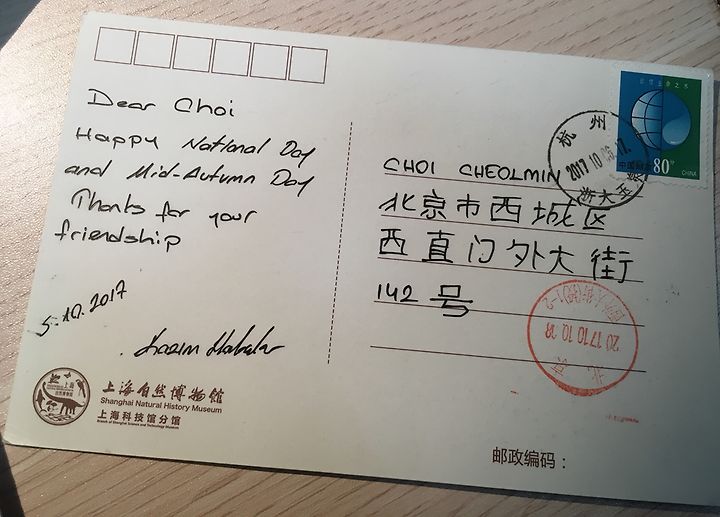 Dear Choi
Happy National Day
and Mid-Autumn Day
Thanks for your
friendship
5.10.2017
上海自然博物馆
Shanghai Natural History Museum
上海科技馆分馆
Branch of Shanghai Science and Technology Museum
80分
中国邮政
CHINA
杭州
2017.10.06.17
浙大
CHOI CHEOLMIN
北京市西城区
西直门外大街
142号
2017.10.10.18
北京
邮政编码：